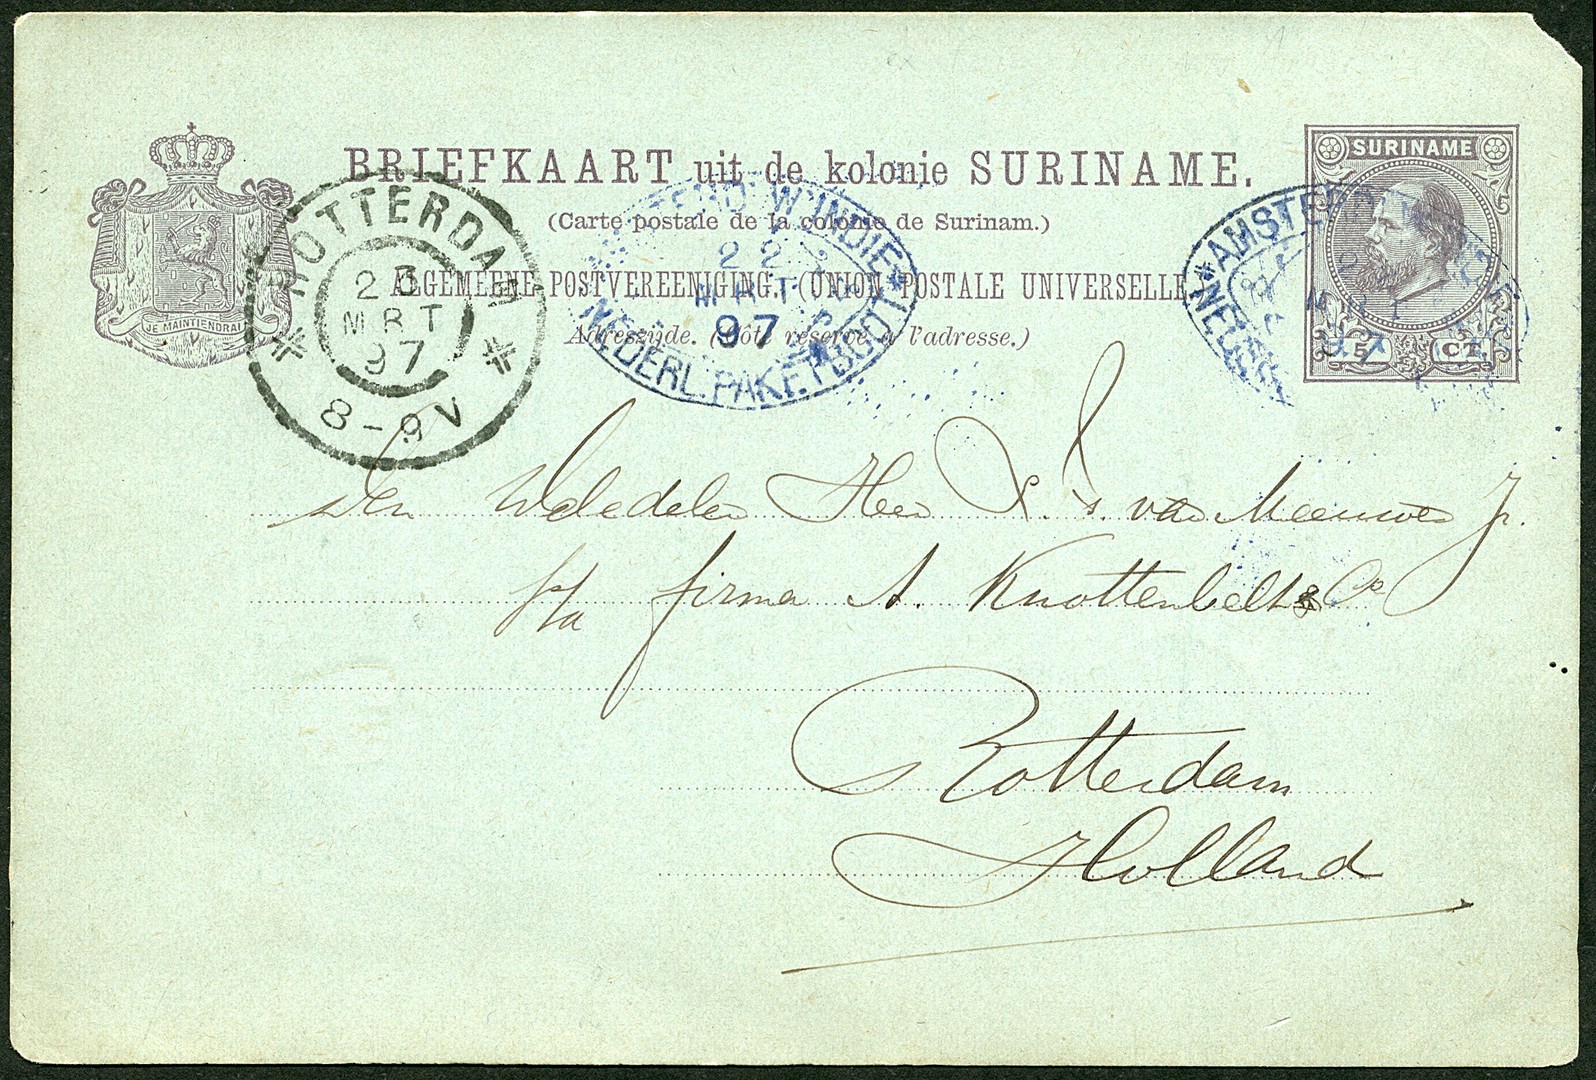 BRIEFKAART uit de kolonie SURINAME.
(Carte postale de la colonie de Surinam.)
ALGEMEENE POSTVEREENIGING. (UNION POSTALE UNIVERSELLE.)
Adreszijde. (Côté réservé à l'adresse.)
JE MAINTIENDRAI
SURINAME
5 5
5 CT.
ROTTERDAM
23
MRT
97
8-9V
W.INDIE
22
MRT
97
NEDERL. PAKETBOOT
AMSTERD
NED
MRT
97
Den Weledelen Heer S. S. van Meeuwen Jr.
p/a firma A. Knottenbelt & Co
Rotterdam
Holland